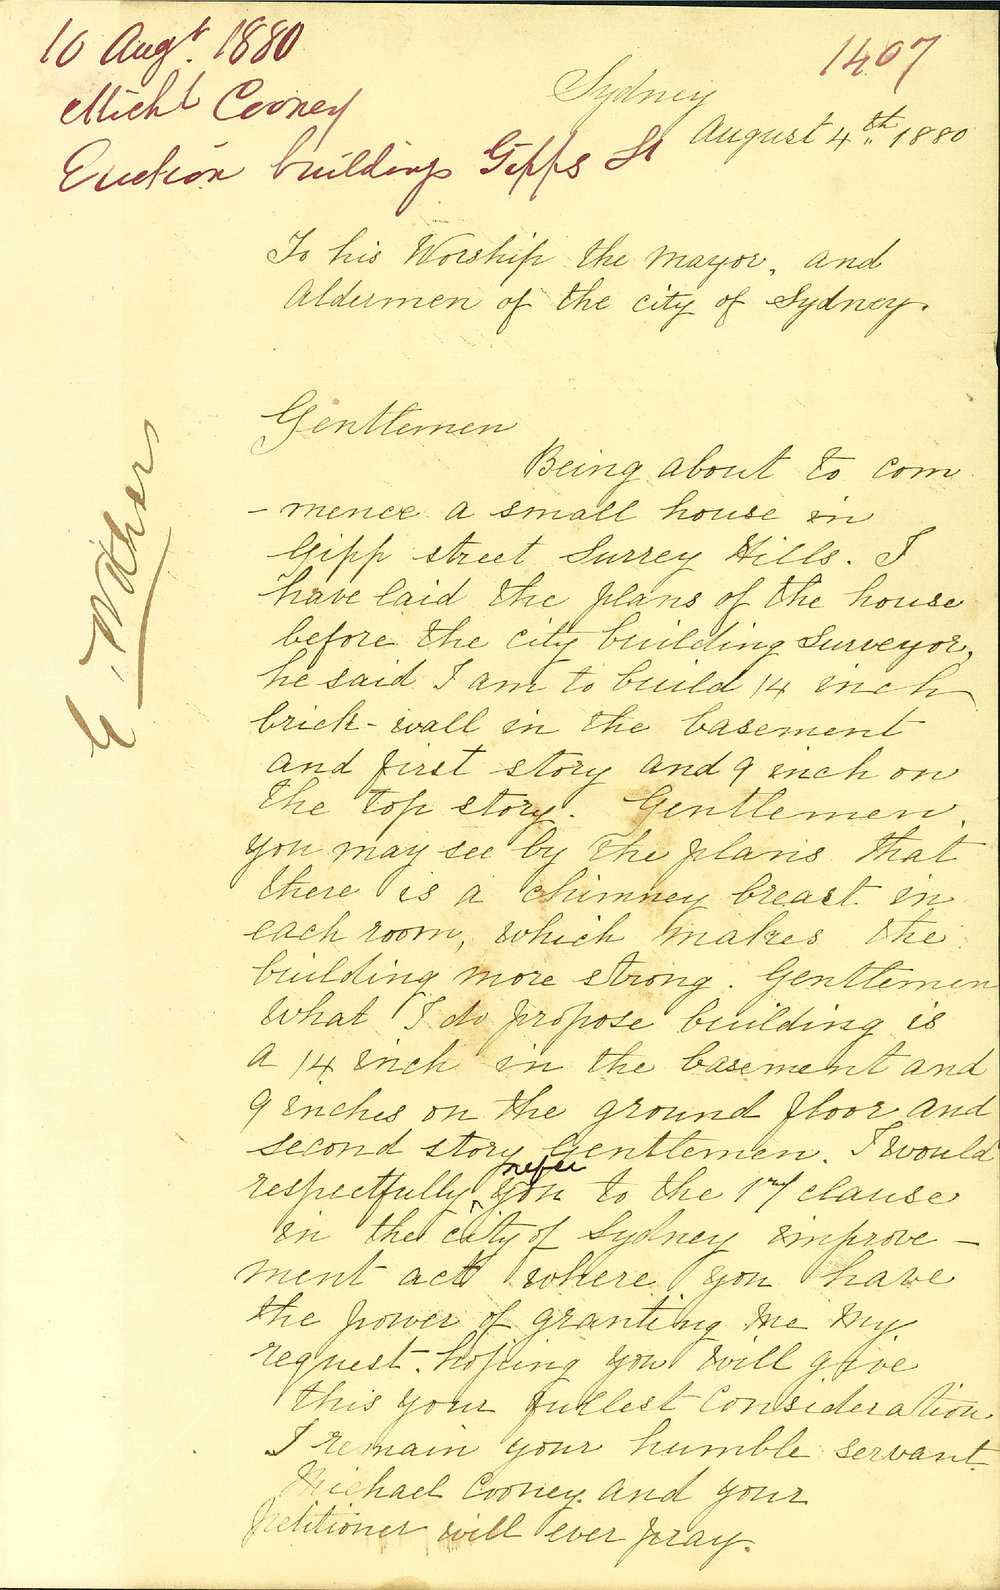 10 Augt. 1880
Michl Cooney
Erection buildings Gipps St
1407
Sydney
August 4th 1880
To his Worship the Mayor, and
Aldermen of the city of Sydney.
Gentlemen
Being about to com
- mence a small house in
Gipp street Surrey Hills. I
have laid the plans of the house
before the city building Surveyor,
he said I am to build 14 inch
brick-wall in the basement
and first story and 9 inch on
the top story. Gentlemen,
you may see by the plans that
there is a chimney breast in
each room, which makes the
building more strong. Gentlemen
what I do propose building is
a 14 inch in the basement and
9 inches on the ground floor and
second story Gentlemen. I would
respectfully refer you to the clause
in the city of Sydney improve -
ment act where you have
the power of granting me my
request. hoping you will give
this your fullest consideration
I remain your humble servant.
Michael Cooney. and your
petitioner will ever pray.